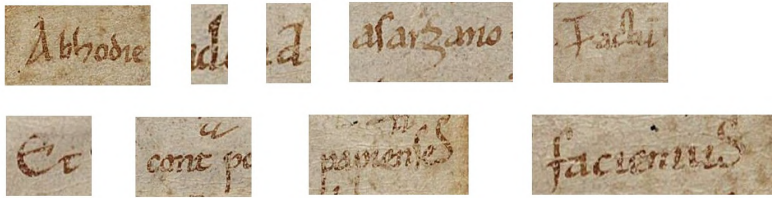 Abhodie de d asarzano Factū
Et cont̄ po papienses faciemus